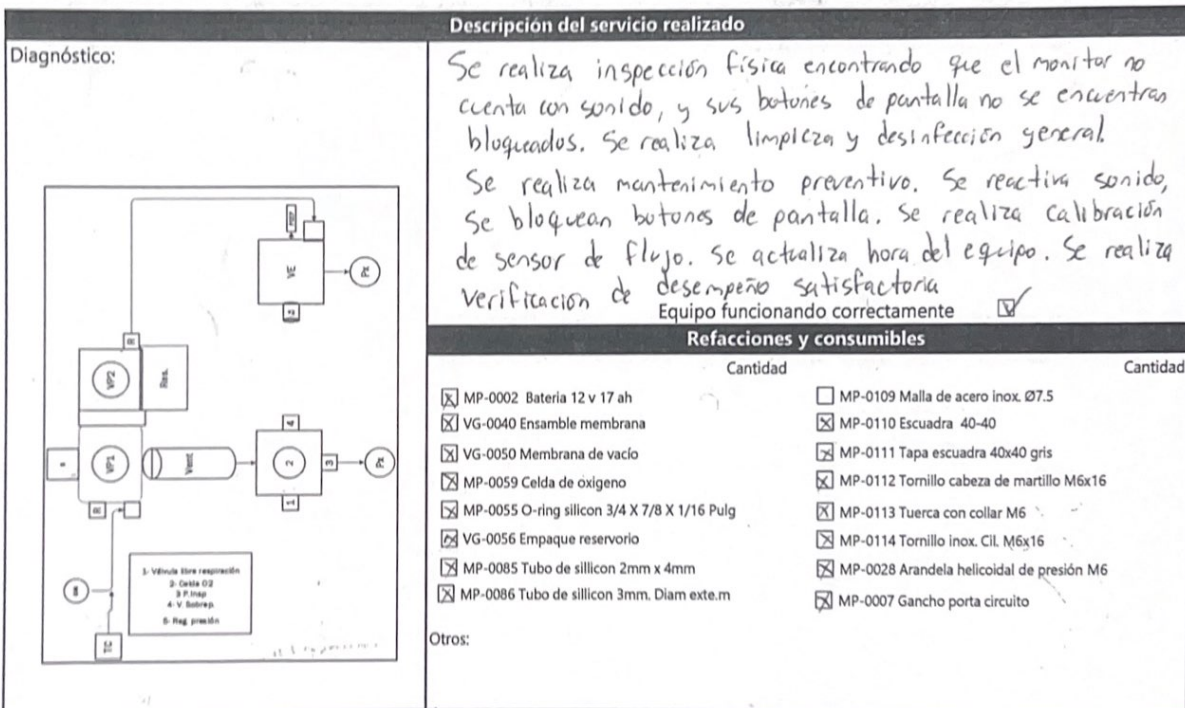 Descripción del servicio realizado
Diagnóstico:
Se realiza inspección física encontrando que el monitor no
cuenta con sonido, y sus botones de pantalla no se encuentran
bloqueados. Se realiza limpieza y desinfección general.
Se realiza mantenimiento preventivo. Se reactiva sonido,
se bloquean botones de pantalla. Se realiza calibración
de sensor de flujo. Se actualiza hora del equipo. Se realiza
verificación de desempeño satisfactoria
Equipo funcionando correctamente
VE
Px
R
VP2
Res.
VP1
Vent
R
4
2
3
Px
1
1- Válvula libre respiración
2- Celda O2
3 P.Insp
4- V. Sobrep.
5- Reg. presión
TC
Refacciones y consumibles
Cantidad
Cantidad
MP-0002 Bateria 12 v 17 ah
VG-0040 Ensamble membrana
VG-0050 Membrana de vacío
MP-0059 Celda de oxigeno
MP-0055 O-ring silicon 3/4 X 7/8 X 1/16 Pulg
VG-0056 Empaque reservorio
MP-0085 Tubo de sillicon 2mm x 4mm
MP-0086 Tubo de sillicon 3mm. Diam exte.m
MP-0109 Malla de acero inox. Ø7.5
MP-0110 Escuadra 40-40
MP-0111 Tapa escuadra 40x40 gris
MP-0112 Tornillo cabeza de martillo M6x16
MP-0113 Tuerca con collar M6
MP-0114 Tornillo inox. Cil. M6x16
MP-0028 Arandela helicoidal de presión M6
MP-0007 Gancho porta circuito
Otros: